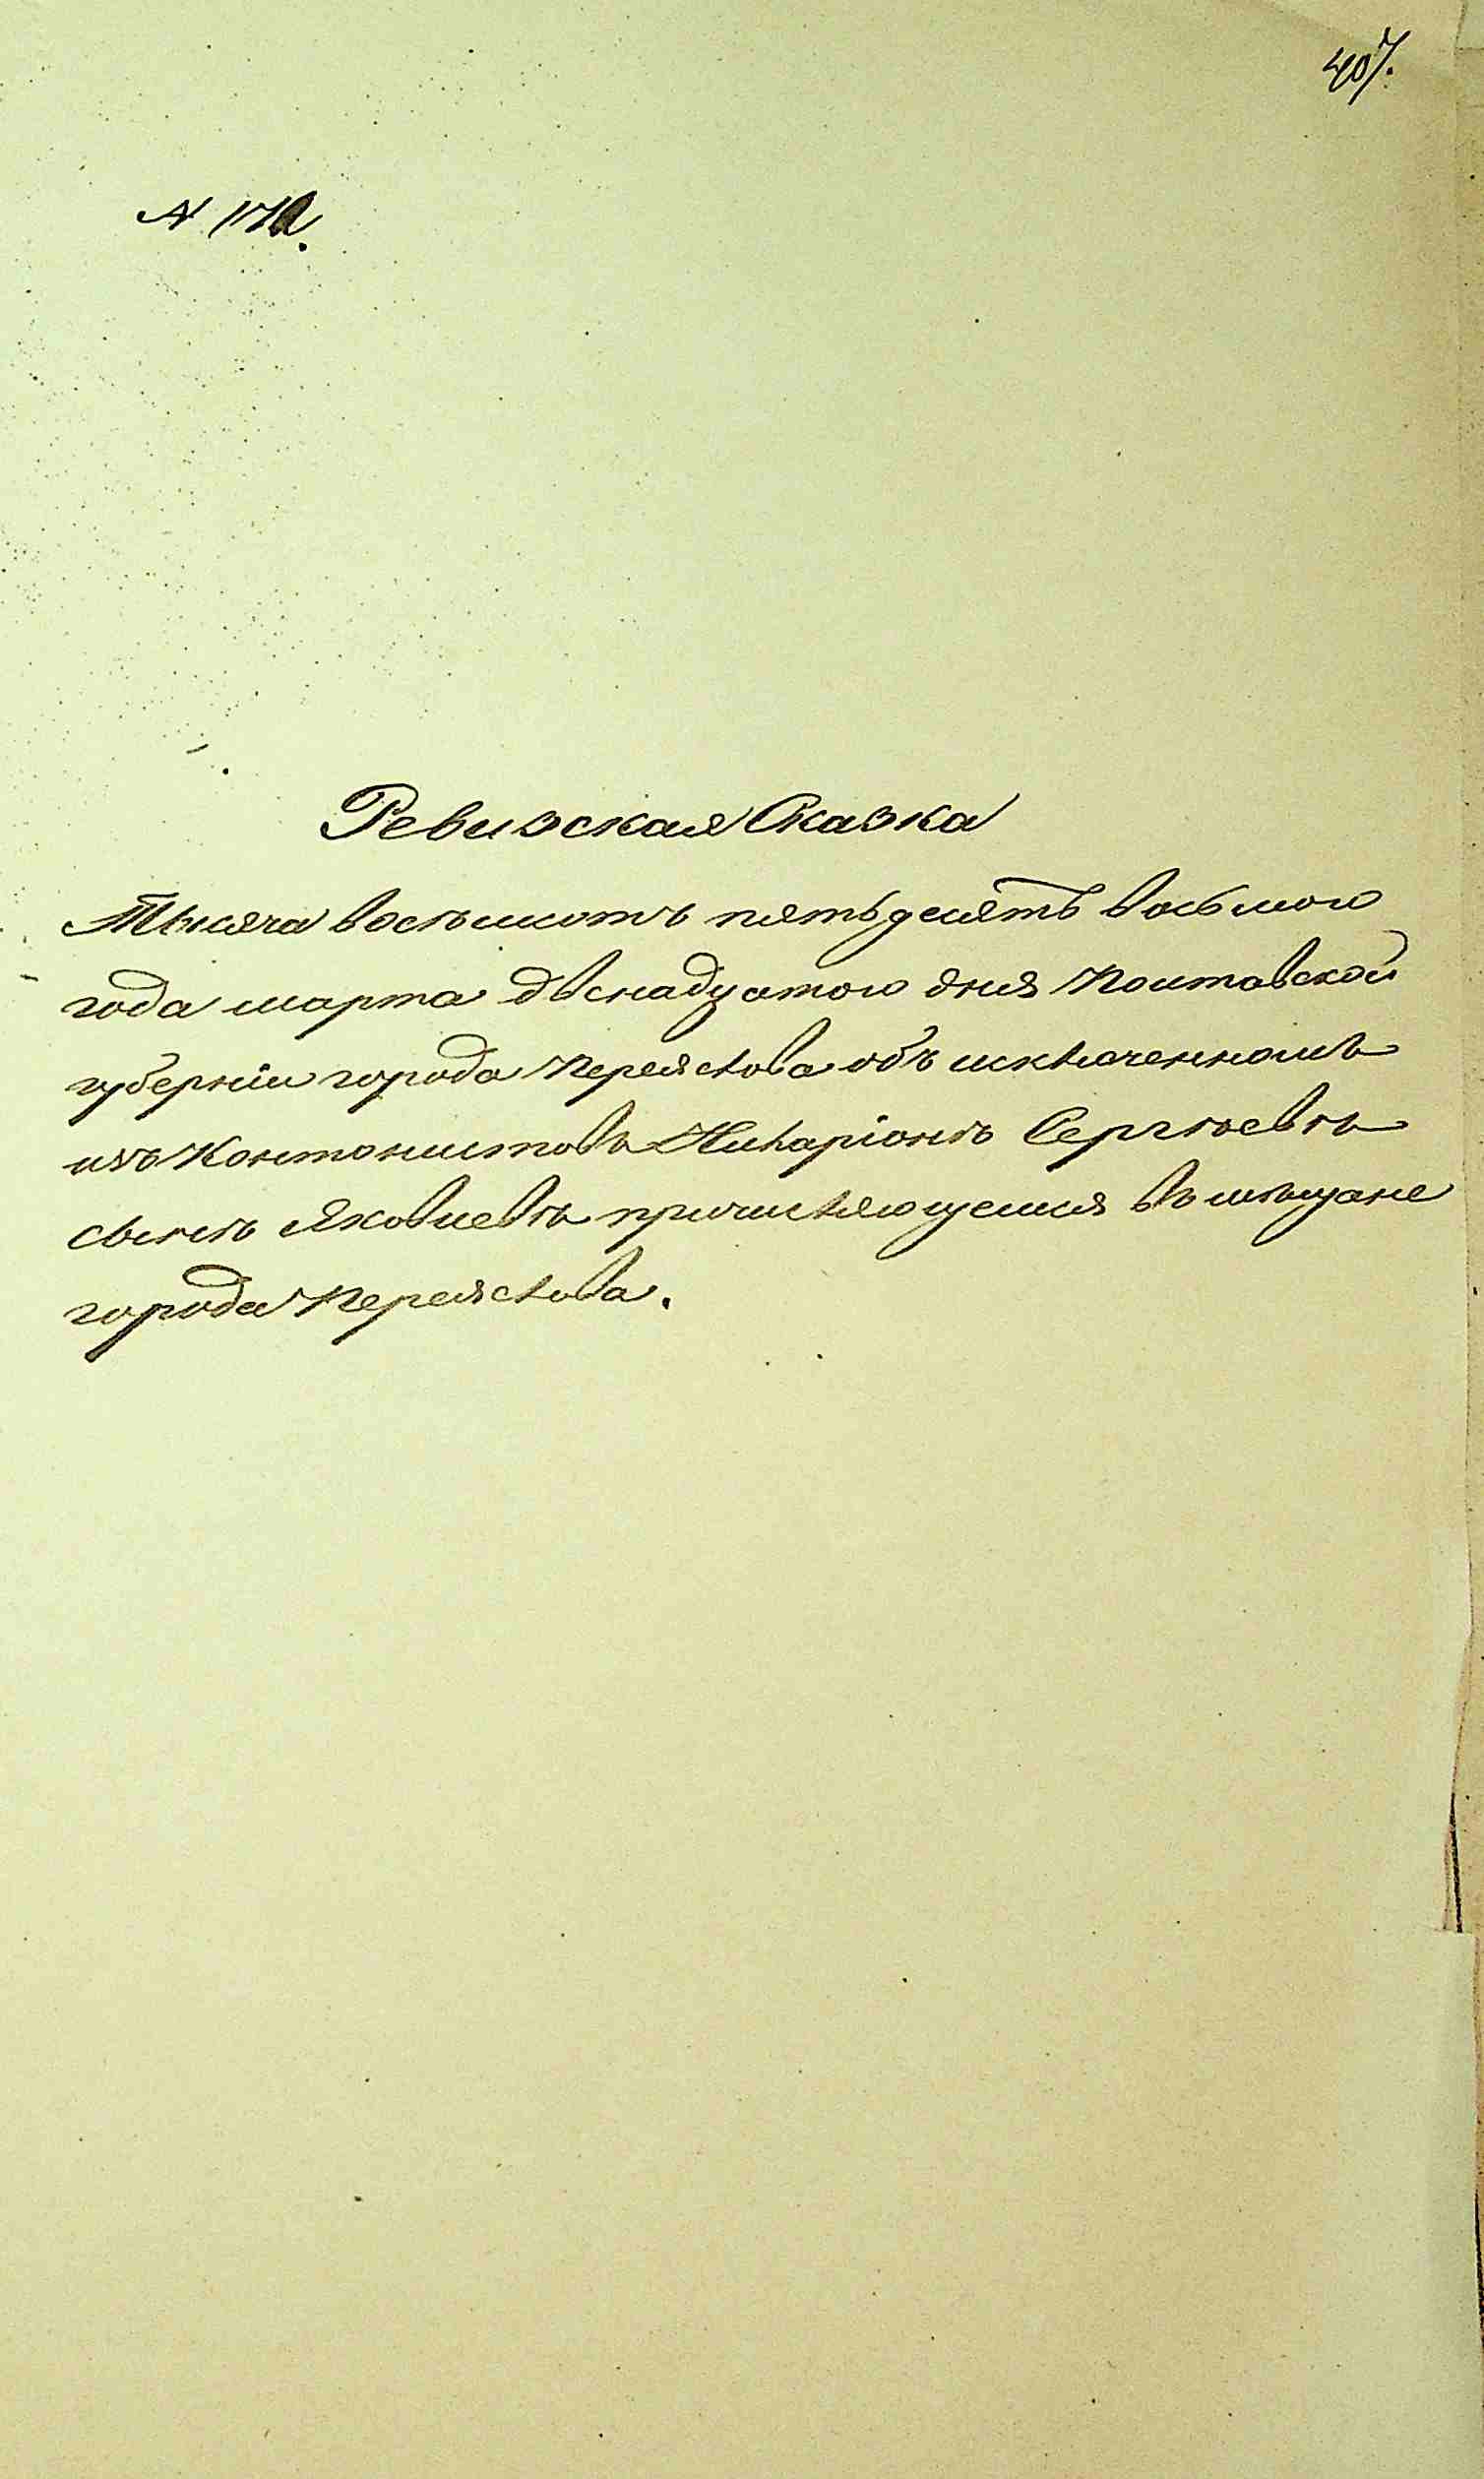 407.
Ревизская Сказка
Тысяча восемьсотъ пятьдесятъ восьмого
года марта двенадцатого дня Полтавской
губернiи города Переяслова объ исключенномъ
изъ Кантонистовъ Иларiонѣ Сергѣевѣ
сынѣ Яковлевѣ причисляющемся въ мѣщане
города Переяслова.